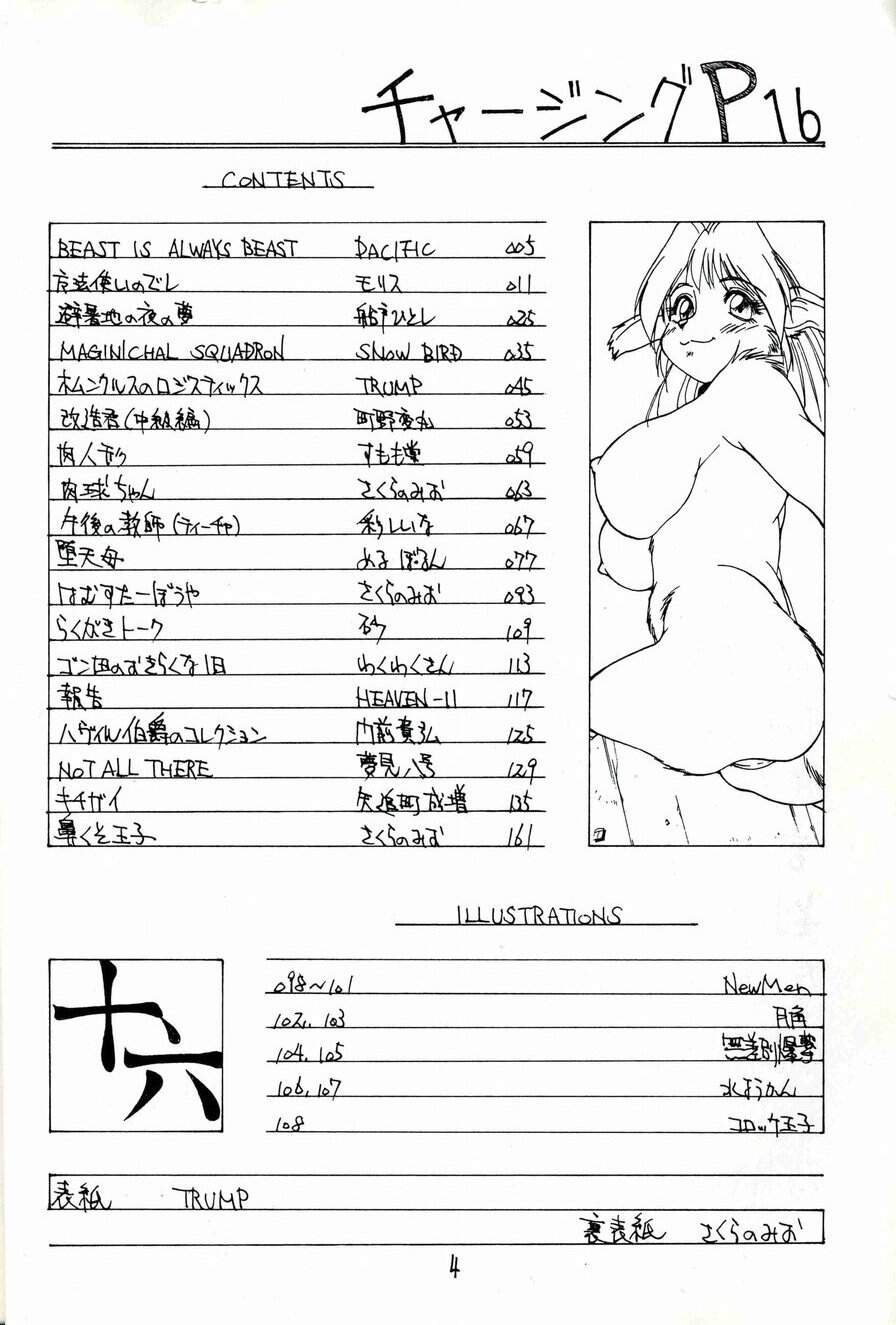 チャージングP16
CONTENTS
BEAST IS ALWAYS BEAST PACIFIC 005
方法使いのでし モリス 011
避暑地の夜の夢 船戸ひとし 025
MAGINICHAL SQUADRON SNOW BIRD 035
ホムンクルスのロジスティックス TRUMP 045
改造君(中級編) 町野変丸 053
肉人形 すもも堂 059
肉球ちゃん さくらのみお 063
午後の教師(ティーチャ) 彩しいな 067
堕天母 める ぼるん 077
はむすたーぼうや さくらのみお 093
らくがきトーク 砂 109
ゴン田のおきらくな1日 わくわくさん 113
報告 HEAVEN-11 117
ハヴィル伯爵のコレクション 門前貴弘 125
NOT ALL THERE 夢見八号 129
キチガイ 矢追町成増 135
鼻くそ玉子 さくらのみお 161
ILLUSTRATIONS
098~101 NewMen
102,103
104,105 無差別爆撃
106,107 水ようかん
108 コロッケ玉子
十六
表紙 TRUMP
裏表紙 さくらのみお
4